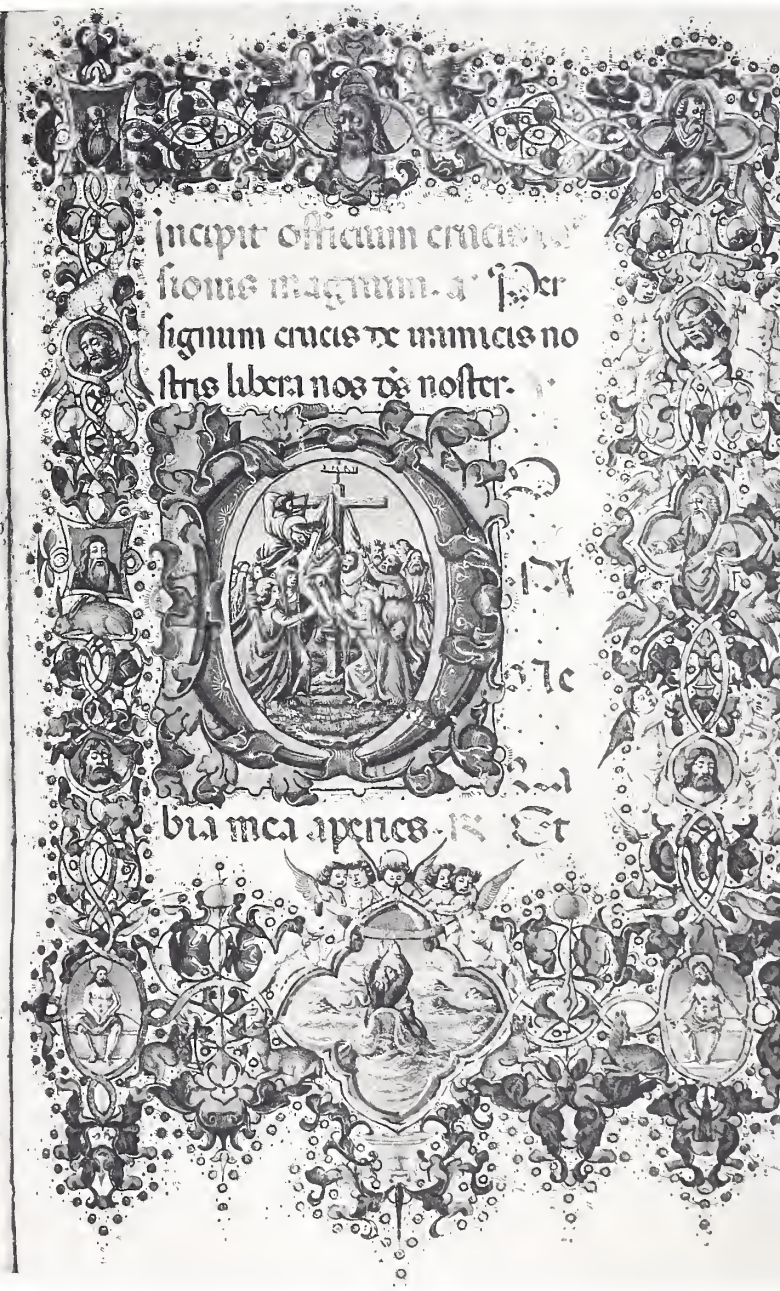 Incipit officium crucis pas
sionis magnum. a Per
signum crucis de inimicis no
stris libera nos ds noster.
D
M
ne
la
bia mea aperies. R Et